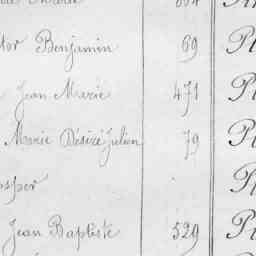 tor Benjamin 69 P
Jean Marie 471 P
Marie Désiré Julien 79 P
osper P
Jean Baptiste 529 P